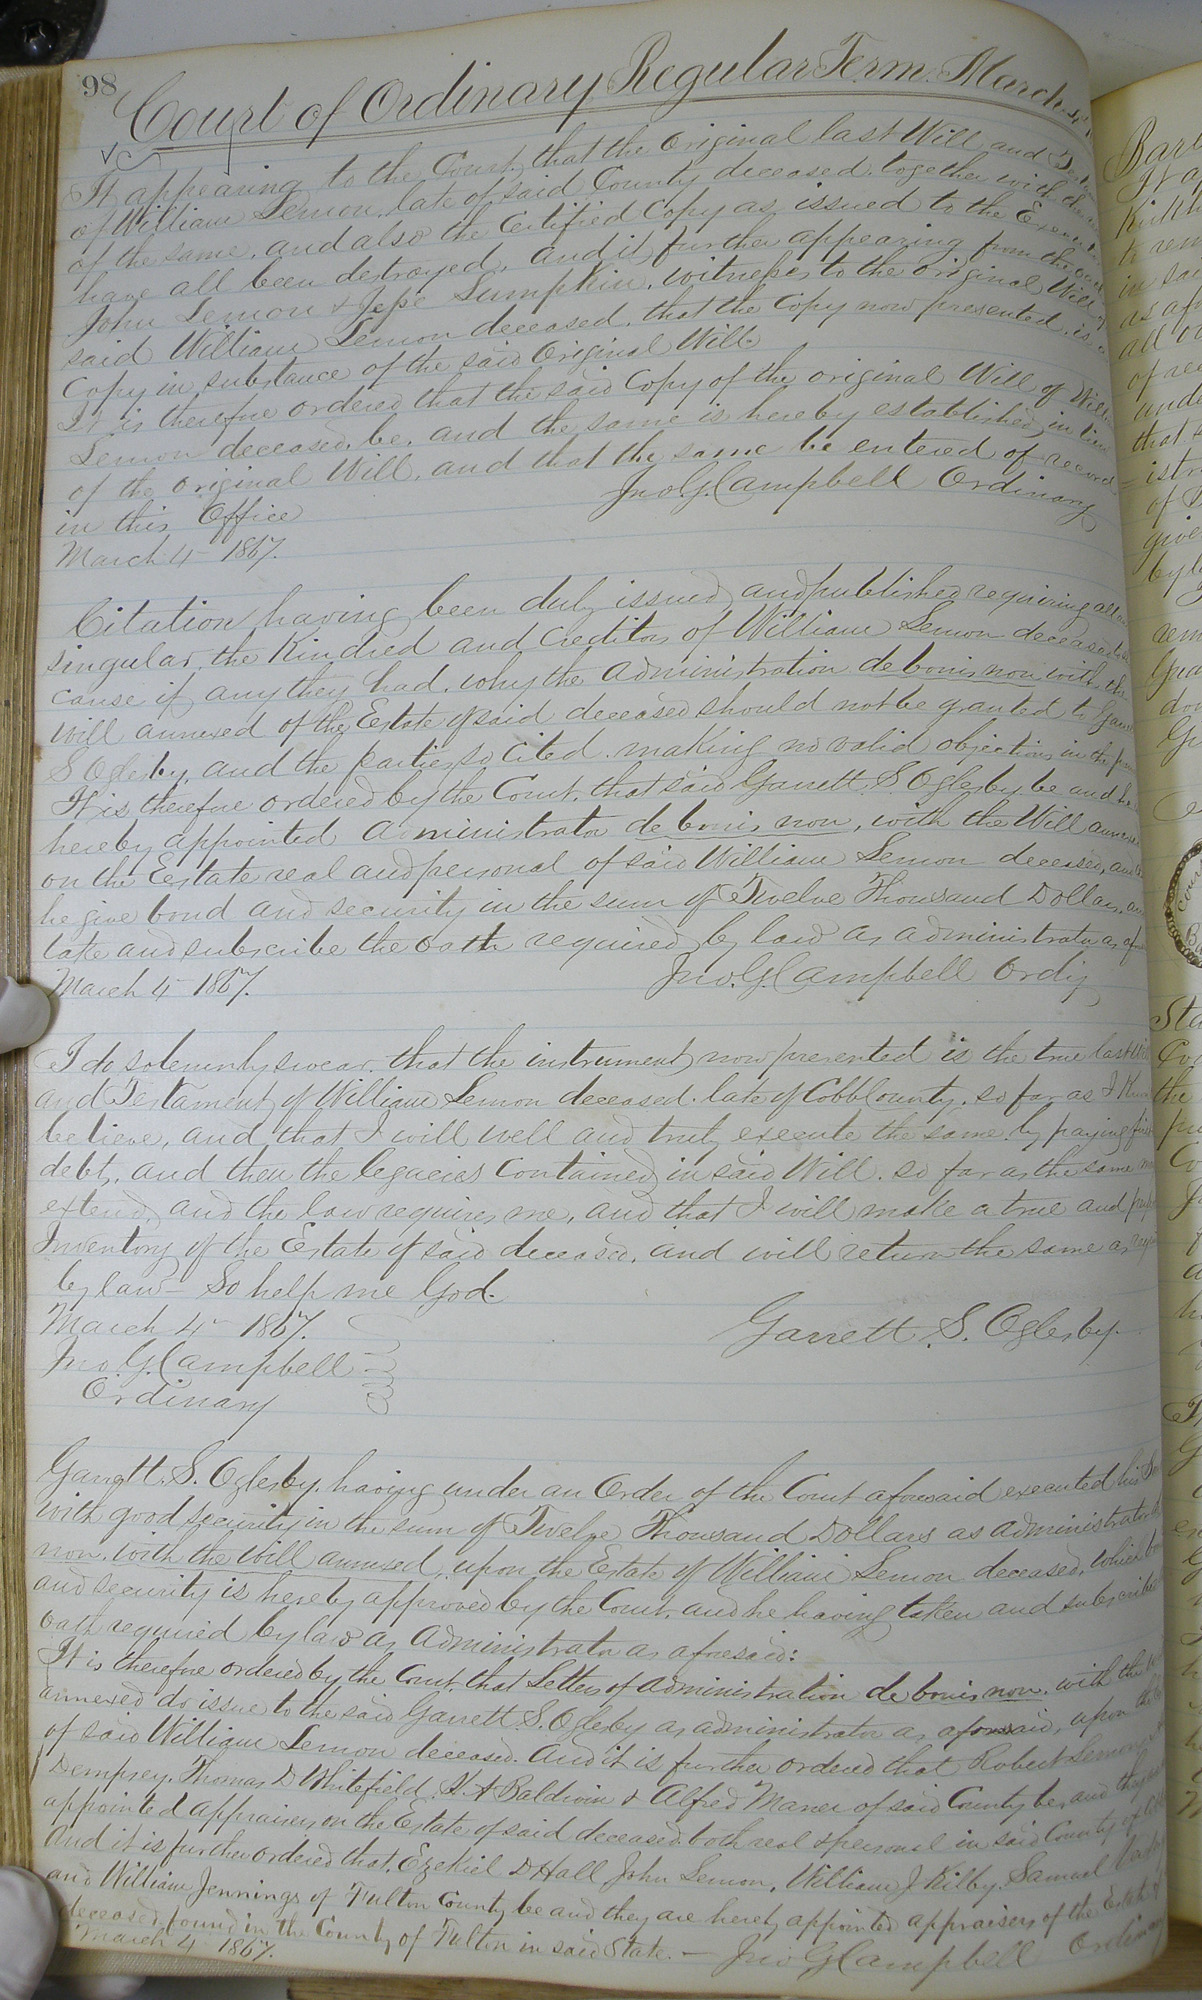 98
Court of Ordinary Regular Term March 4th
It appearing to the Court that the Original last Will and
of William Lemon, late of said County deceased, together with the
of the same, and also the Certified Copy as issued to the
have all been destroyed. and it further appearing from the
John Lemon & Jesse Lumpkin, witnesses to the original Will of
said William Lemon deceased, that the Copy now presented, is a
Copy in substance of the said Original Will.
It is therefore ordered that the said Copy of the original Will of
Lemon deceased, be, and the same is hereby established in lieu
of the original Will, and that the same be entered of record
in this Office
Jno. G. Campbell Ordinary
March 4 1867.
Citation having been duly issued and published requiring all
singular, the Kindred and Creditors of William Lemon deceased
cause if any they had, why the administration de bonis non with the
will annexed of the Estate of said deceased should not be granted to
S Oglesby, and the parties so cited, making no valid objections in the
It is therefore ordered by the Court, that said Garrett S. Oglesby be and he
hereby appointed administrator de bonis non, with the Will annexed
on the Estate real and personal of said William Lemon deceased, and
he give bond and security in the sum of Twelve Thousand Dollars, and
take and subscribe the oath required by law as administrator as
March 4 1867. Jno. G. Campbell Ordiy
I do solemnly swear, that the instrument now presented is the true last
and Testament of William Lemon deceased, late of Cobb County, so far as I
believe, and that I will well and truly execute the same, by paying first
debts, and then the legacies contained in said Will, so far as the same
extend, and the law requires me, and that I will make a true and
Inventory of the Estate of said deceased, and will return the same as
by law - So help me God.
March 4 1867. Garrett. S. Oglesby
Jno. G. Campbell
Ordinary
Garrett. S. Oglesby, having under an Order of the Court aforesaid executed his
with good security in the sum of Twelve Thousand Dollars as administrator
non. with the will annexed, upon the Estate of William Lemon deceased, which
and security is hereby approved by the Court, and he having taken and subscribed
oath required by law as administrator as aforesaid:
It is therefore ordered by the Court, that Letters of administration de bonis non. with the
annexed do issue to the said Garrett. S. Oglesby as administrator as aforesaid, upon the
of said William Lemon deceased. and it is further ordered that Robert Lemon
Dempsey, Thomas D Whitefield, Baldwin & Alfred Maner of said County be, and they
appointed appraisers on the Estate of said deceased, both real & personal in said County of
And it is further ordered that, Ezekiel D Hall John Lemon, William J. Kilby, Samuel
and William Jennings of Fulton County be and they are hereby appointed appraisers of the Estate of
deceased found in the County of Fulton in said State. -
March 4 1867. Jno G Campbell Ordinary